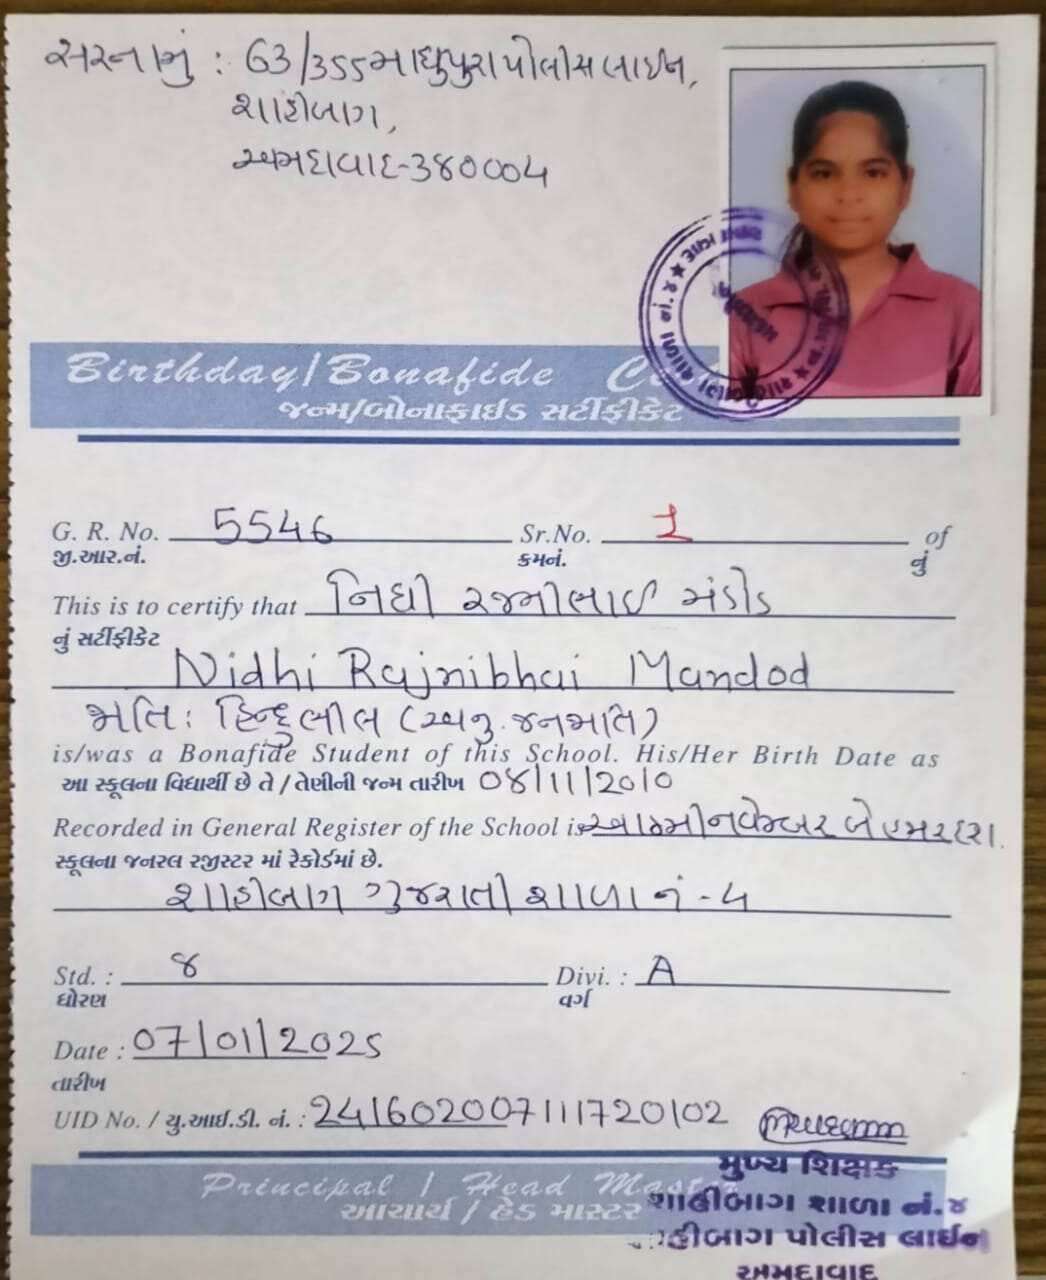 સરનામું : 63/355 માધુપુરા પોલીસ લાઈન,
શાહીબાગ,
અમદાવાદ-380004
Birthday/Bonafide
જન્મ/બોનાફાઇડ સર્ટીફીકેટ
G. R. No. 5546 Sr.No. 1 of
જી.આર.નં. ક્રમનં. નું
This is to certify that નિધી રજનીભાઈ મંડોડ
નું સર્ટીફીકેટ
Nidhi Rajnibhai Mandod
જાતિ: હિન્દુ ભીલ (અનુ. જનજાતિ)
is/was a Bonafide Student of this School. His/Her Birth Date as
આ સ્કૂલના વિદ્યાર્થી છે તે / તેણીની જન્મ તારીખ 08/11/2010
Recorded in General Register of the School is આઠમી નવેમ્બર બે હજાર દશ.
સ્કૂલના જનરલ રજીસ્ટર માં રેકોર્ડમાં છે.
શાહીબાગ ગુજરાતી શાળા નં - 4
Std. : ૪ Divi. : A
ધોરણ વર્ગ
Date : 07/01/2025
તારીખ
UID No. / યુ.આઇ.ડી. નં. : 241602007111720102
Principal / Head Master
આચાર્ય / હેડ માસ્ટર
મુખ્ય શિક્ષક
શાહીબાગ શાળા નં.૪
શાહીબાગ પોલીસ લાઈન
અમદાવાદ